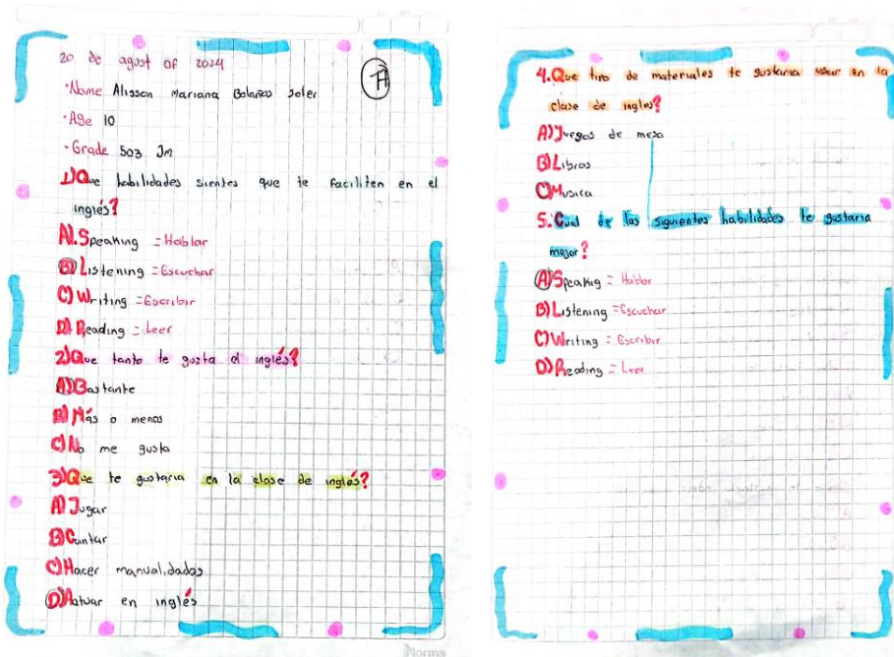 20 de agost of 2024
A
•Name Alisson Mariana Bolaños Soler
•Age 10
-Grade 503 JM
1)Que habilidades sientes que te faciliten en el
inglés?
A).Speaking =Hablar
B)Listening =Escuchar
C)Writing =Escribir
D)Reading =Leer
2)Que tanto te gusta el inglés?
A)Bastante
B)Más o menos
C)No me gusta
3)Que te gustaria en la clase de inglés?
A)Jugar
B)Cantar
C)Hacer manualidades
D)Actuar en inglés
Norma
4.Que tipo de materiales te gustaria usar en la
clase de ingles?
A)Juegos de mesa
B)Libros
C)Musica
5.Cual de las siguientes habilidades te gustaria
mejor?
A)Speaking = Hablar
B)Listening =Escuchar
C)Writing = Escribir
D)Reading = Leer